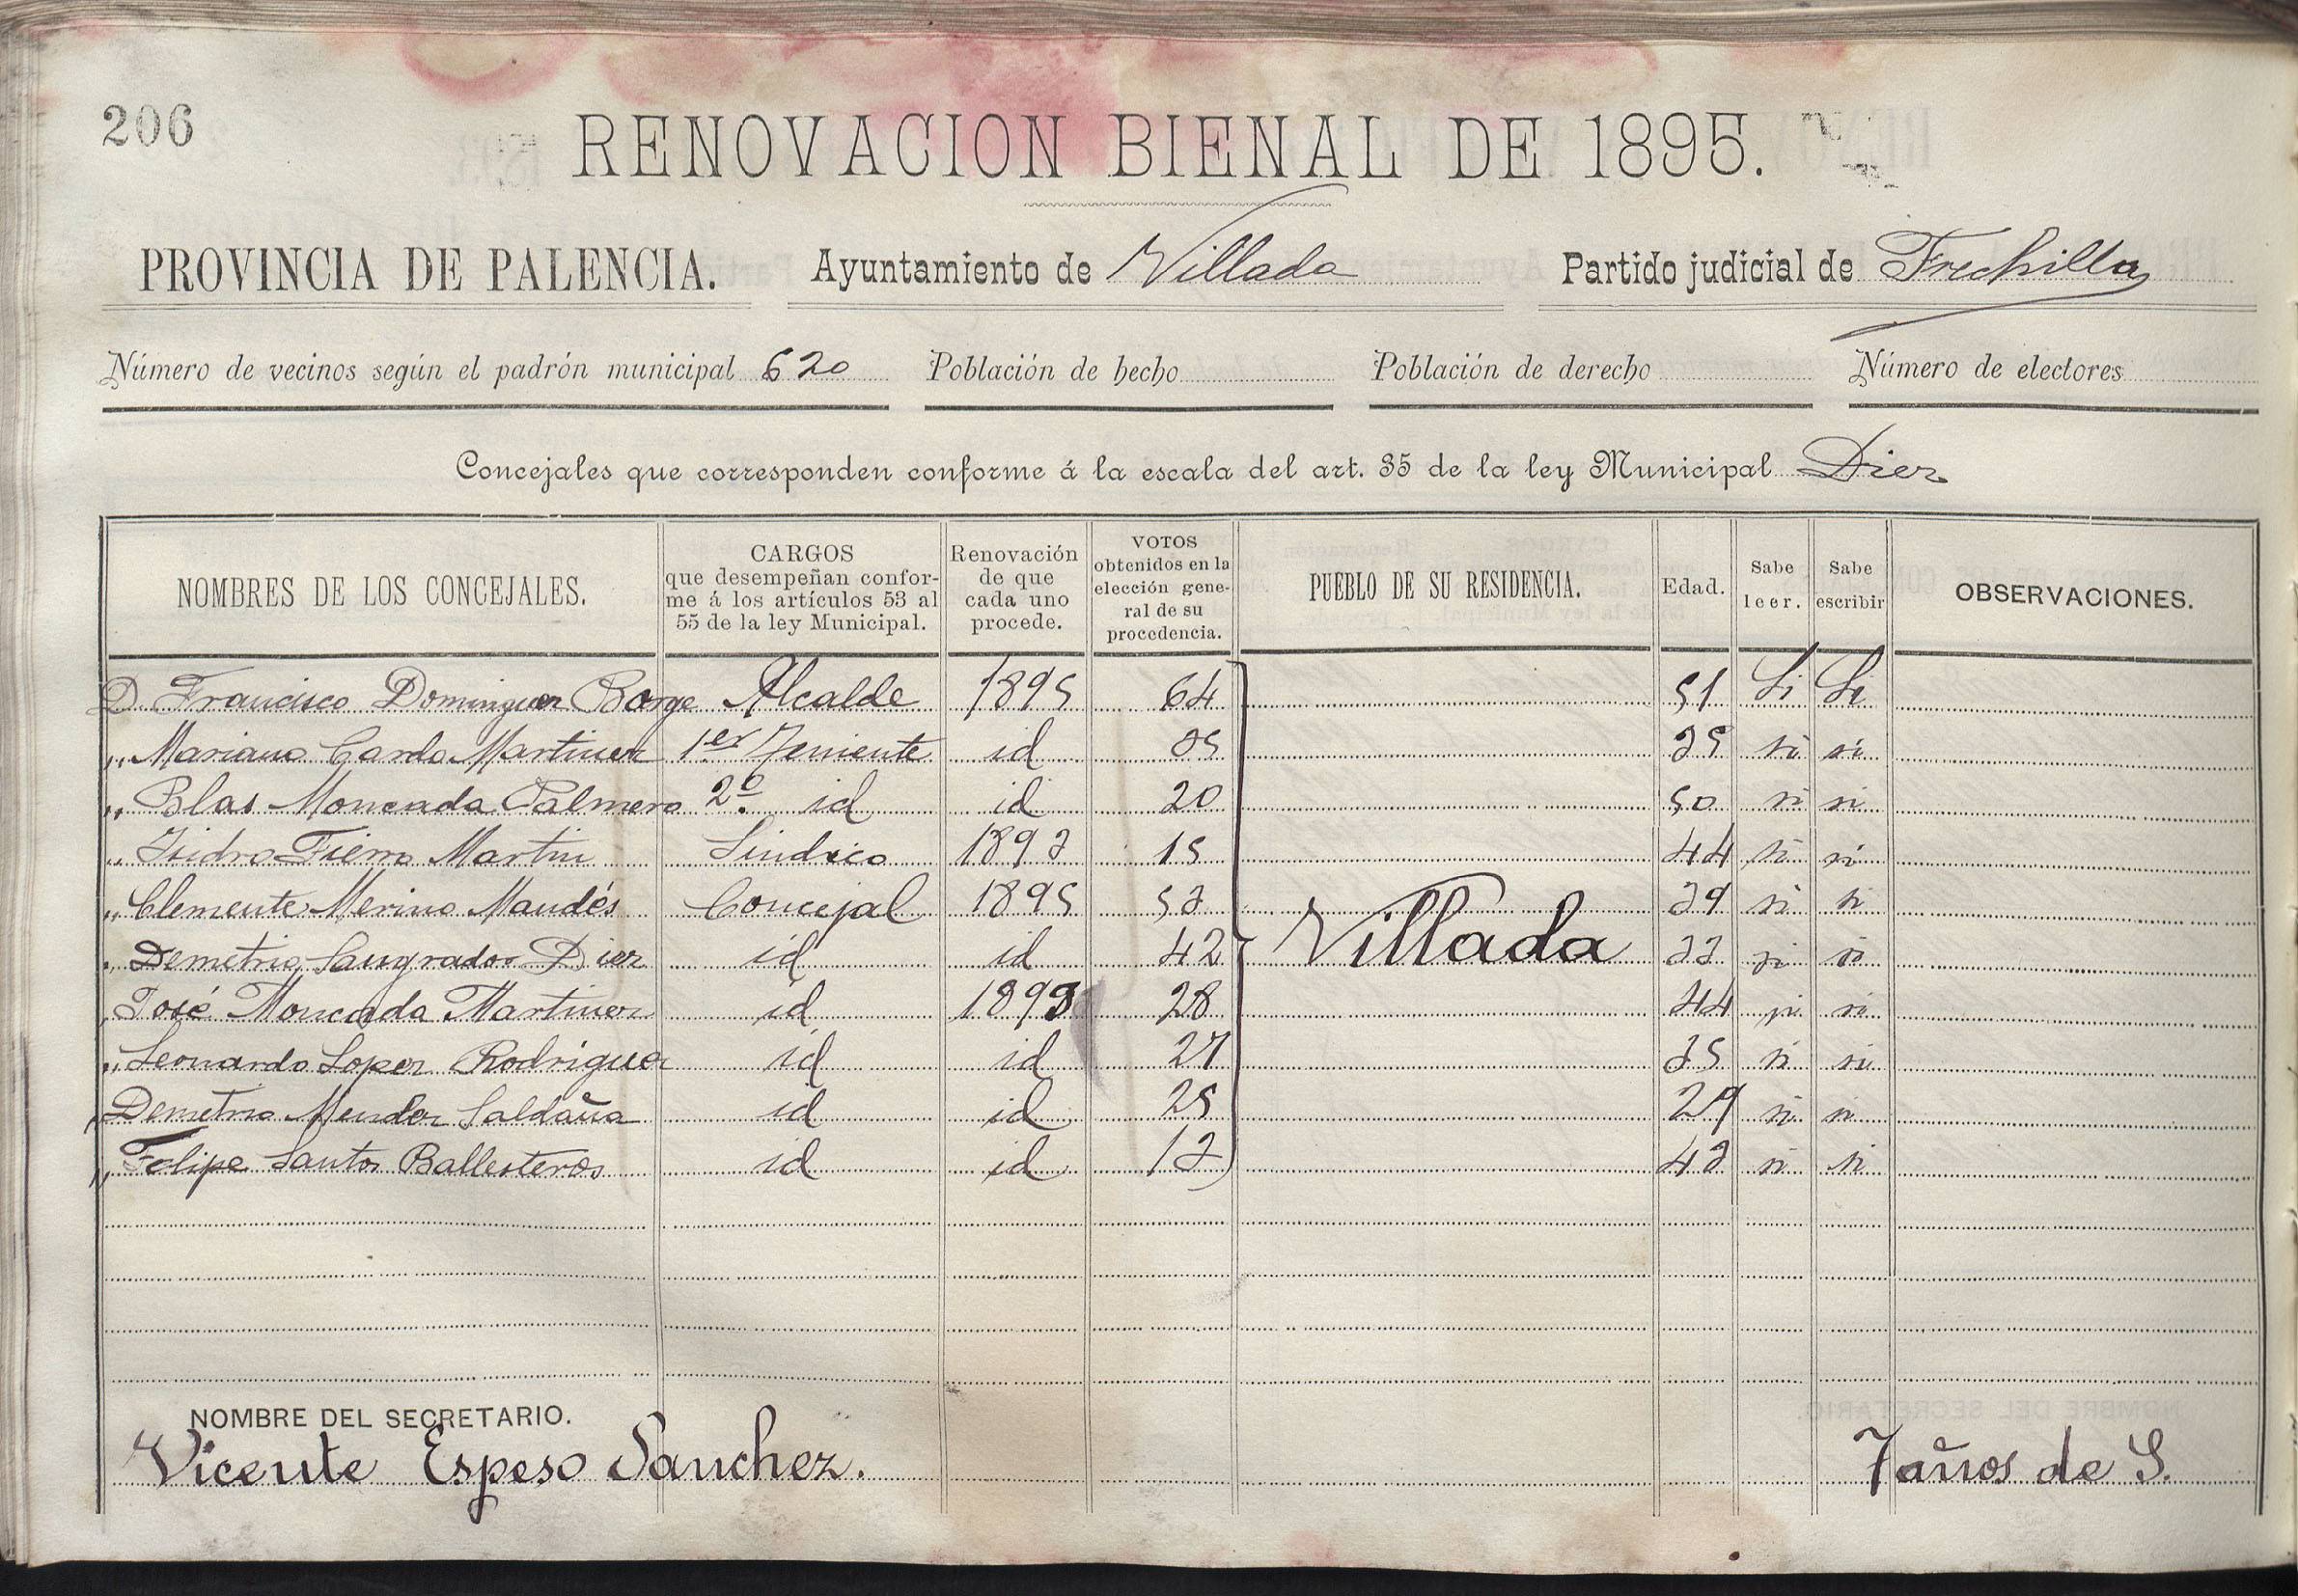 206
RENOVACION BIENAL DE 1895.
PROVINCIA DE PALENCIA. Ayuntamiento de Villada Partido judicial de Frechilla
Número de vecinos según el padrón municipal 620 Población de hecho Población de derecho Número de electores
Concejales que corresponden conforme á la escala del art. 35 de la ley Municipal Diez
NOMBRES DE LOS CONCEJALES. CARGOS que desempeñan conforme á los artículos 53 al 55 de la ley Municipal. Renovación de que cada uno procede. VOTOS obtenidos en la elección general de su procedencia. PUEBLO DE SU RESIDENCIA. Edad. Sabe leer. Sabe escribir OBSERVACIONES.
D. Francisco Dominguez Borge Alcalde 1895 64 51 Si Si
" Mariano Cardo Martinez 1er Teniente id 35 35 si si
" Blas Moncada Palmero 2º id id 20 50 si si
" Isidro Fierro Martin Sindico 1893 15 44 si si
" Clemente Merino Maudés Concejal 1895 53 39 si si
" Demetrio Sangrador Diez id id 42 Villada 33 si si
" José Moncada Martinez id 1893 28 44 si si
" Leonardo Lopez Rodriguez id id 27 35 si si
" Demetrio Mendez Saldaña id id 25 29 si si
" Felipe Santos Ballesteros id id 13 43 si si
NOMBRE DEL SECRETARIO.
Vicente Espeso Sanchez. 7 años de S.